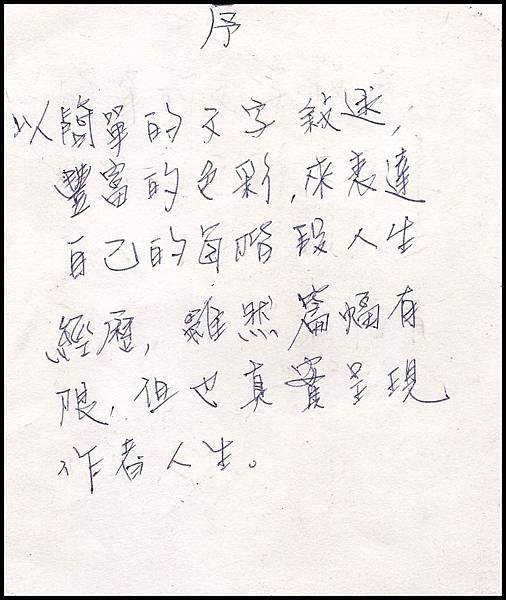 序
以簡單的文字敘述,
豐富的色彩,來表達
自己的每階段人生
經歷,雖然篇幅有
限,但也真實呈現
作者人生。